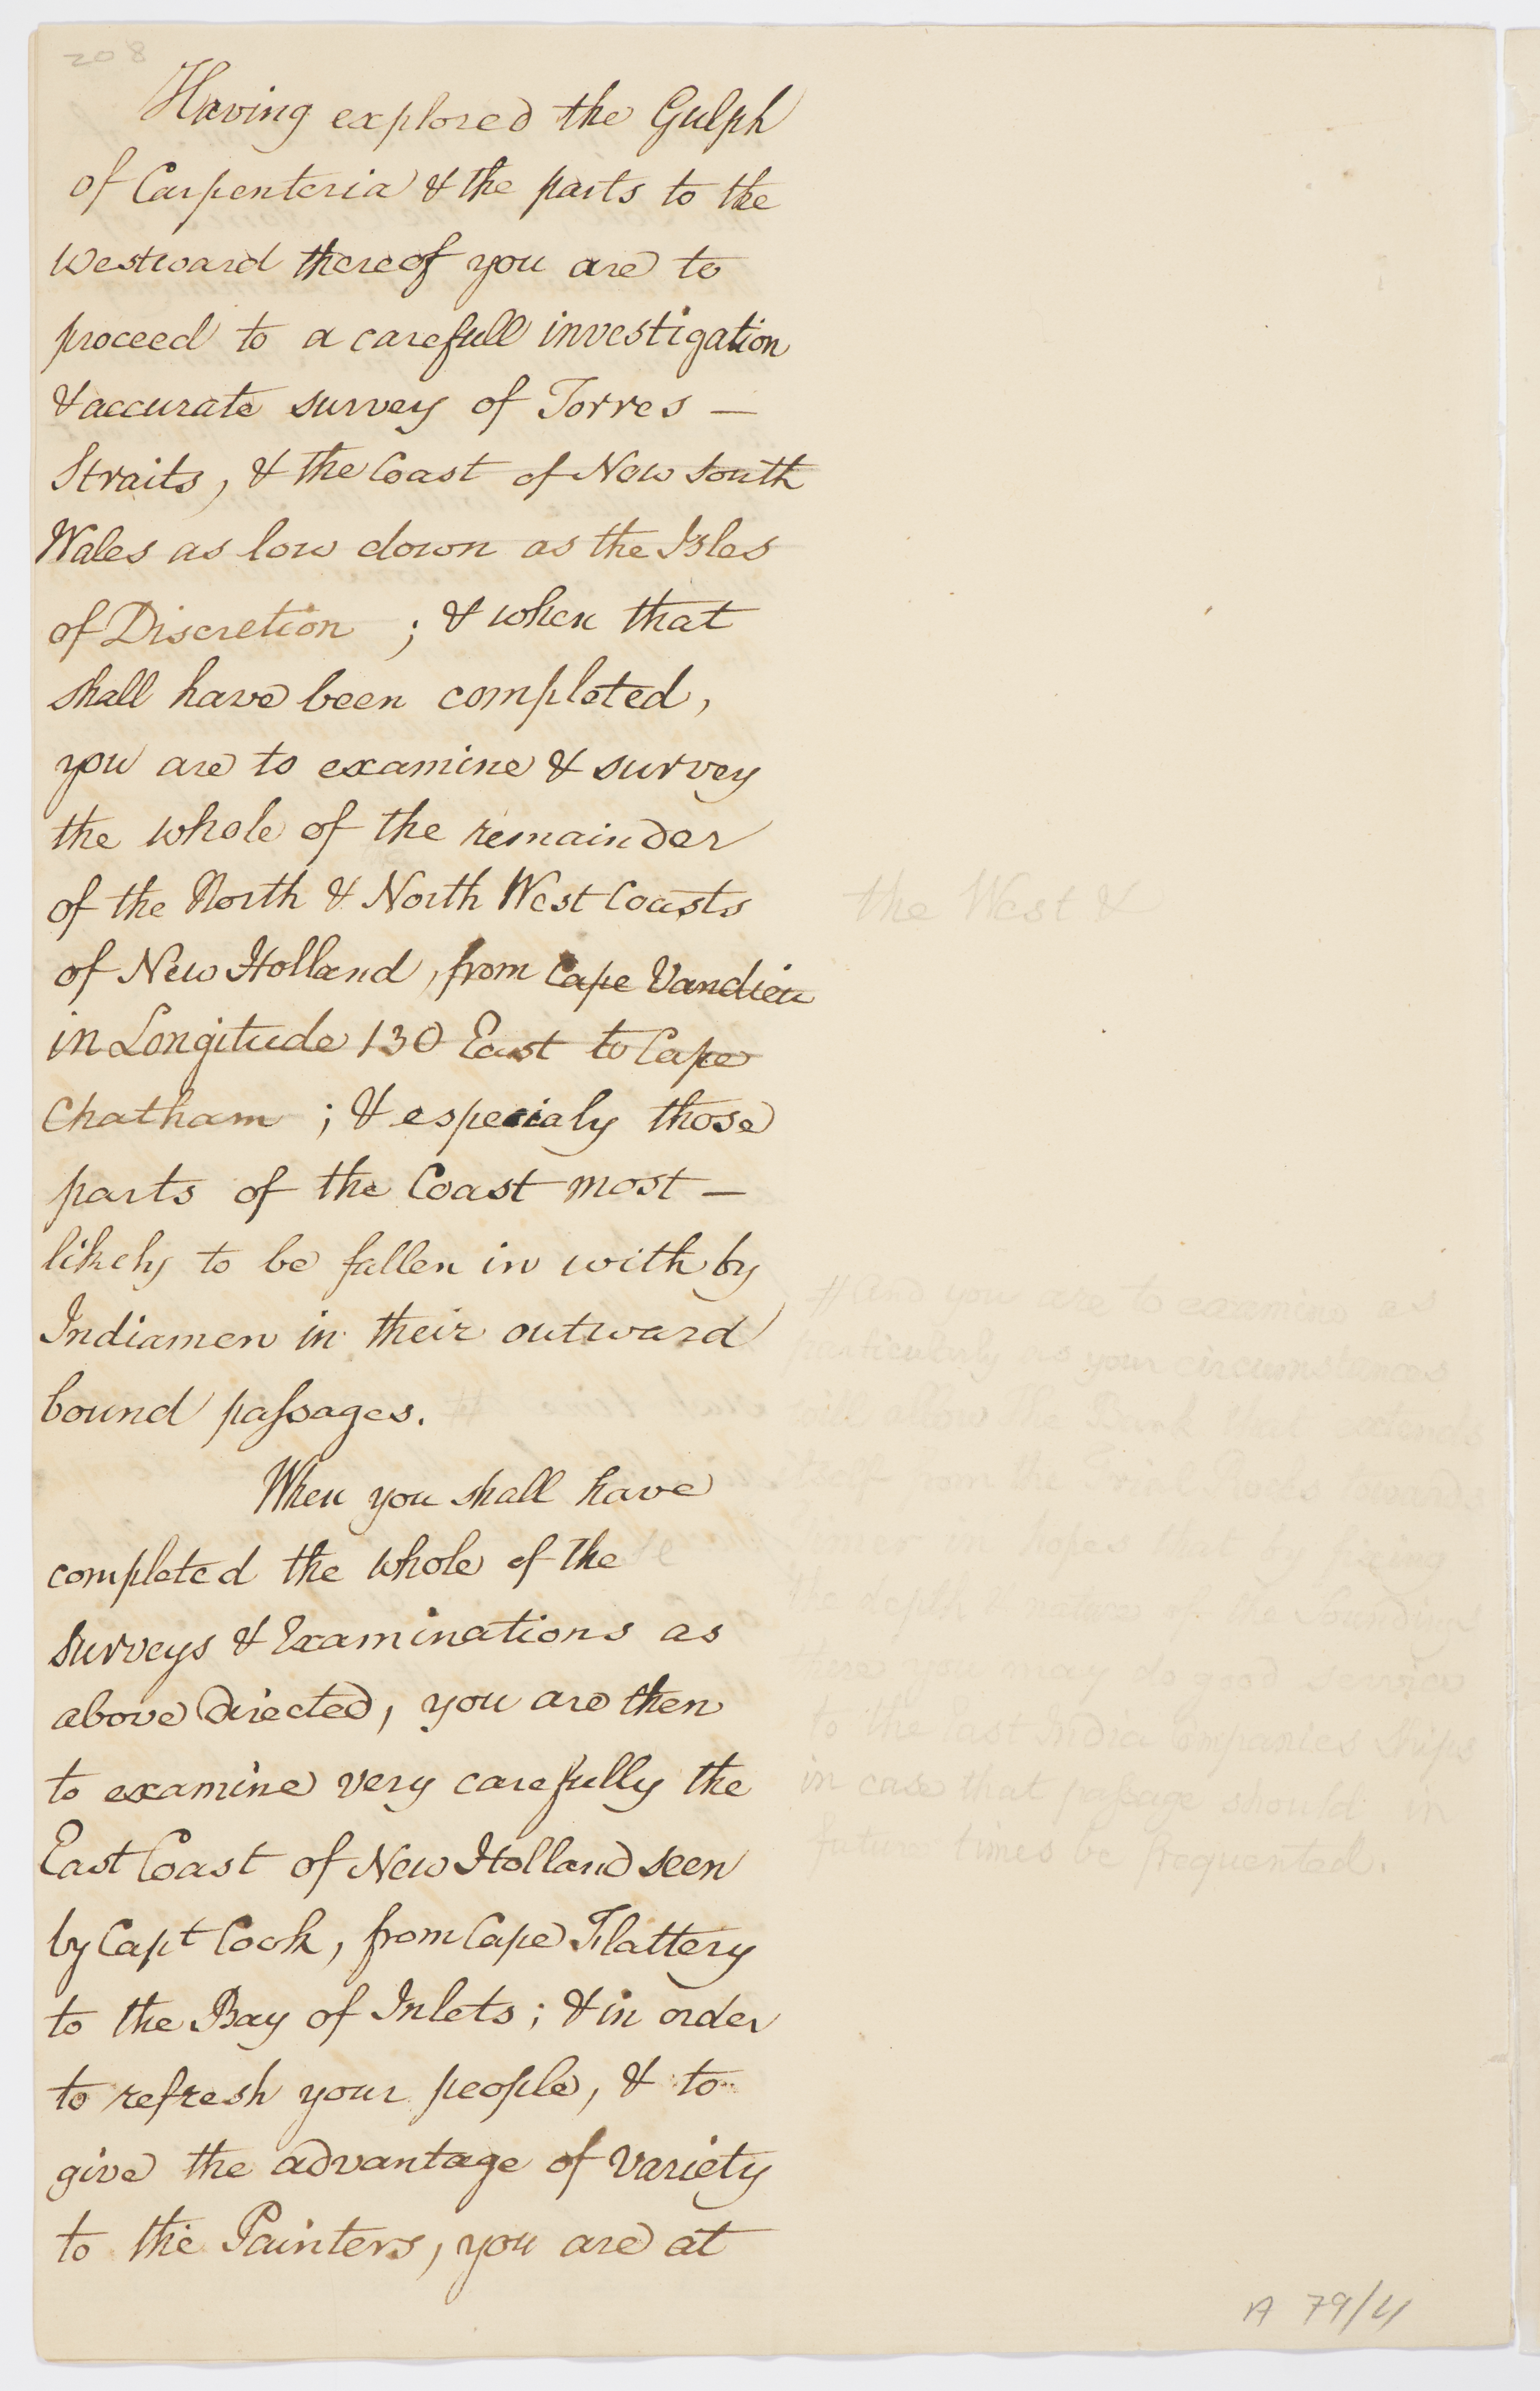 208
Having explored the Gulph
of Carpenteria & the parts to the
Westward thereof you are to
proceed to a carefull investigation
& accurate survey of Torres —
Straits, & the Coast of New South
Wales as low down as the Isles
of Discretion ; & when that
shall have been completed,
you are to examine & survey
the whole of the remainder
of the North & North West Coasts
the West &
of New Holland, from Cape Vandieu
in Longitude 130 East to Cape
Chatham ; & especialy those
parts of the Coast most —
likely to be fallen in with by
Indiamen in their outward
bound passages.
# and you are to examine as
particularly as your circumstances
allow the Bank that extends
itself from the Trial Rocks towards
Timor in hopes that by fixing
the depth & nature of the Soundings
you may do good service
to the East India Companies Ships
in case that passage should in
future times be frequented.
When you shall have
completed the whole of the
surveys & Examinations as
above directed, you are then
to examine very carefully the
East Coast of New Holland seen
by Capt Cook, from Cape Flattery
to the Bay of Inlets; & in order
to refresh your people, & to
give the advantage of variety
to the Painters, you are at
A 79/4